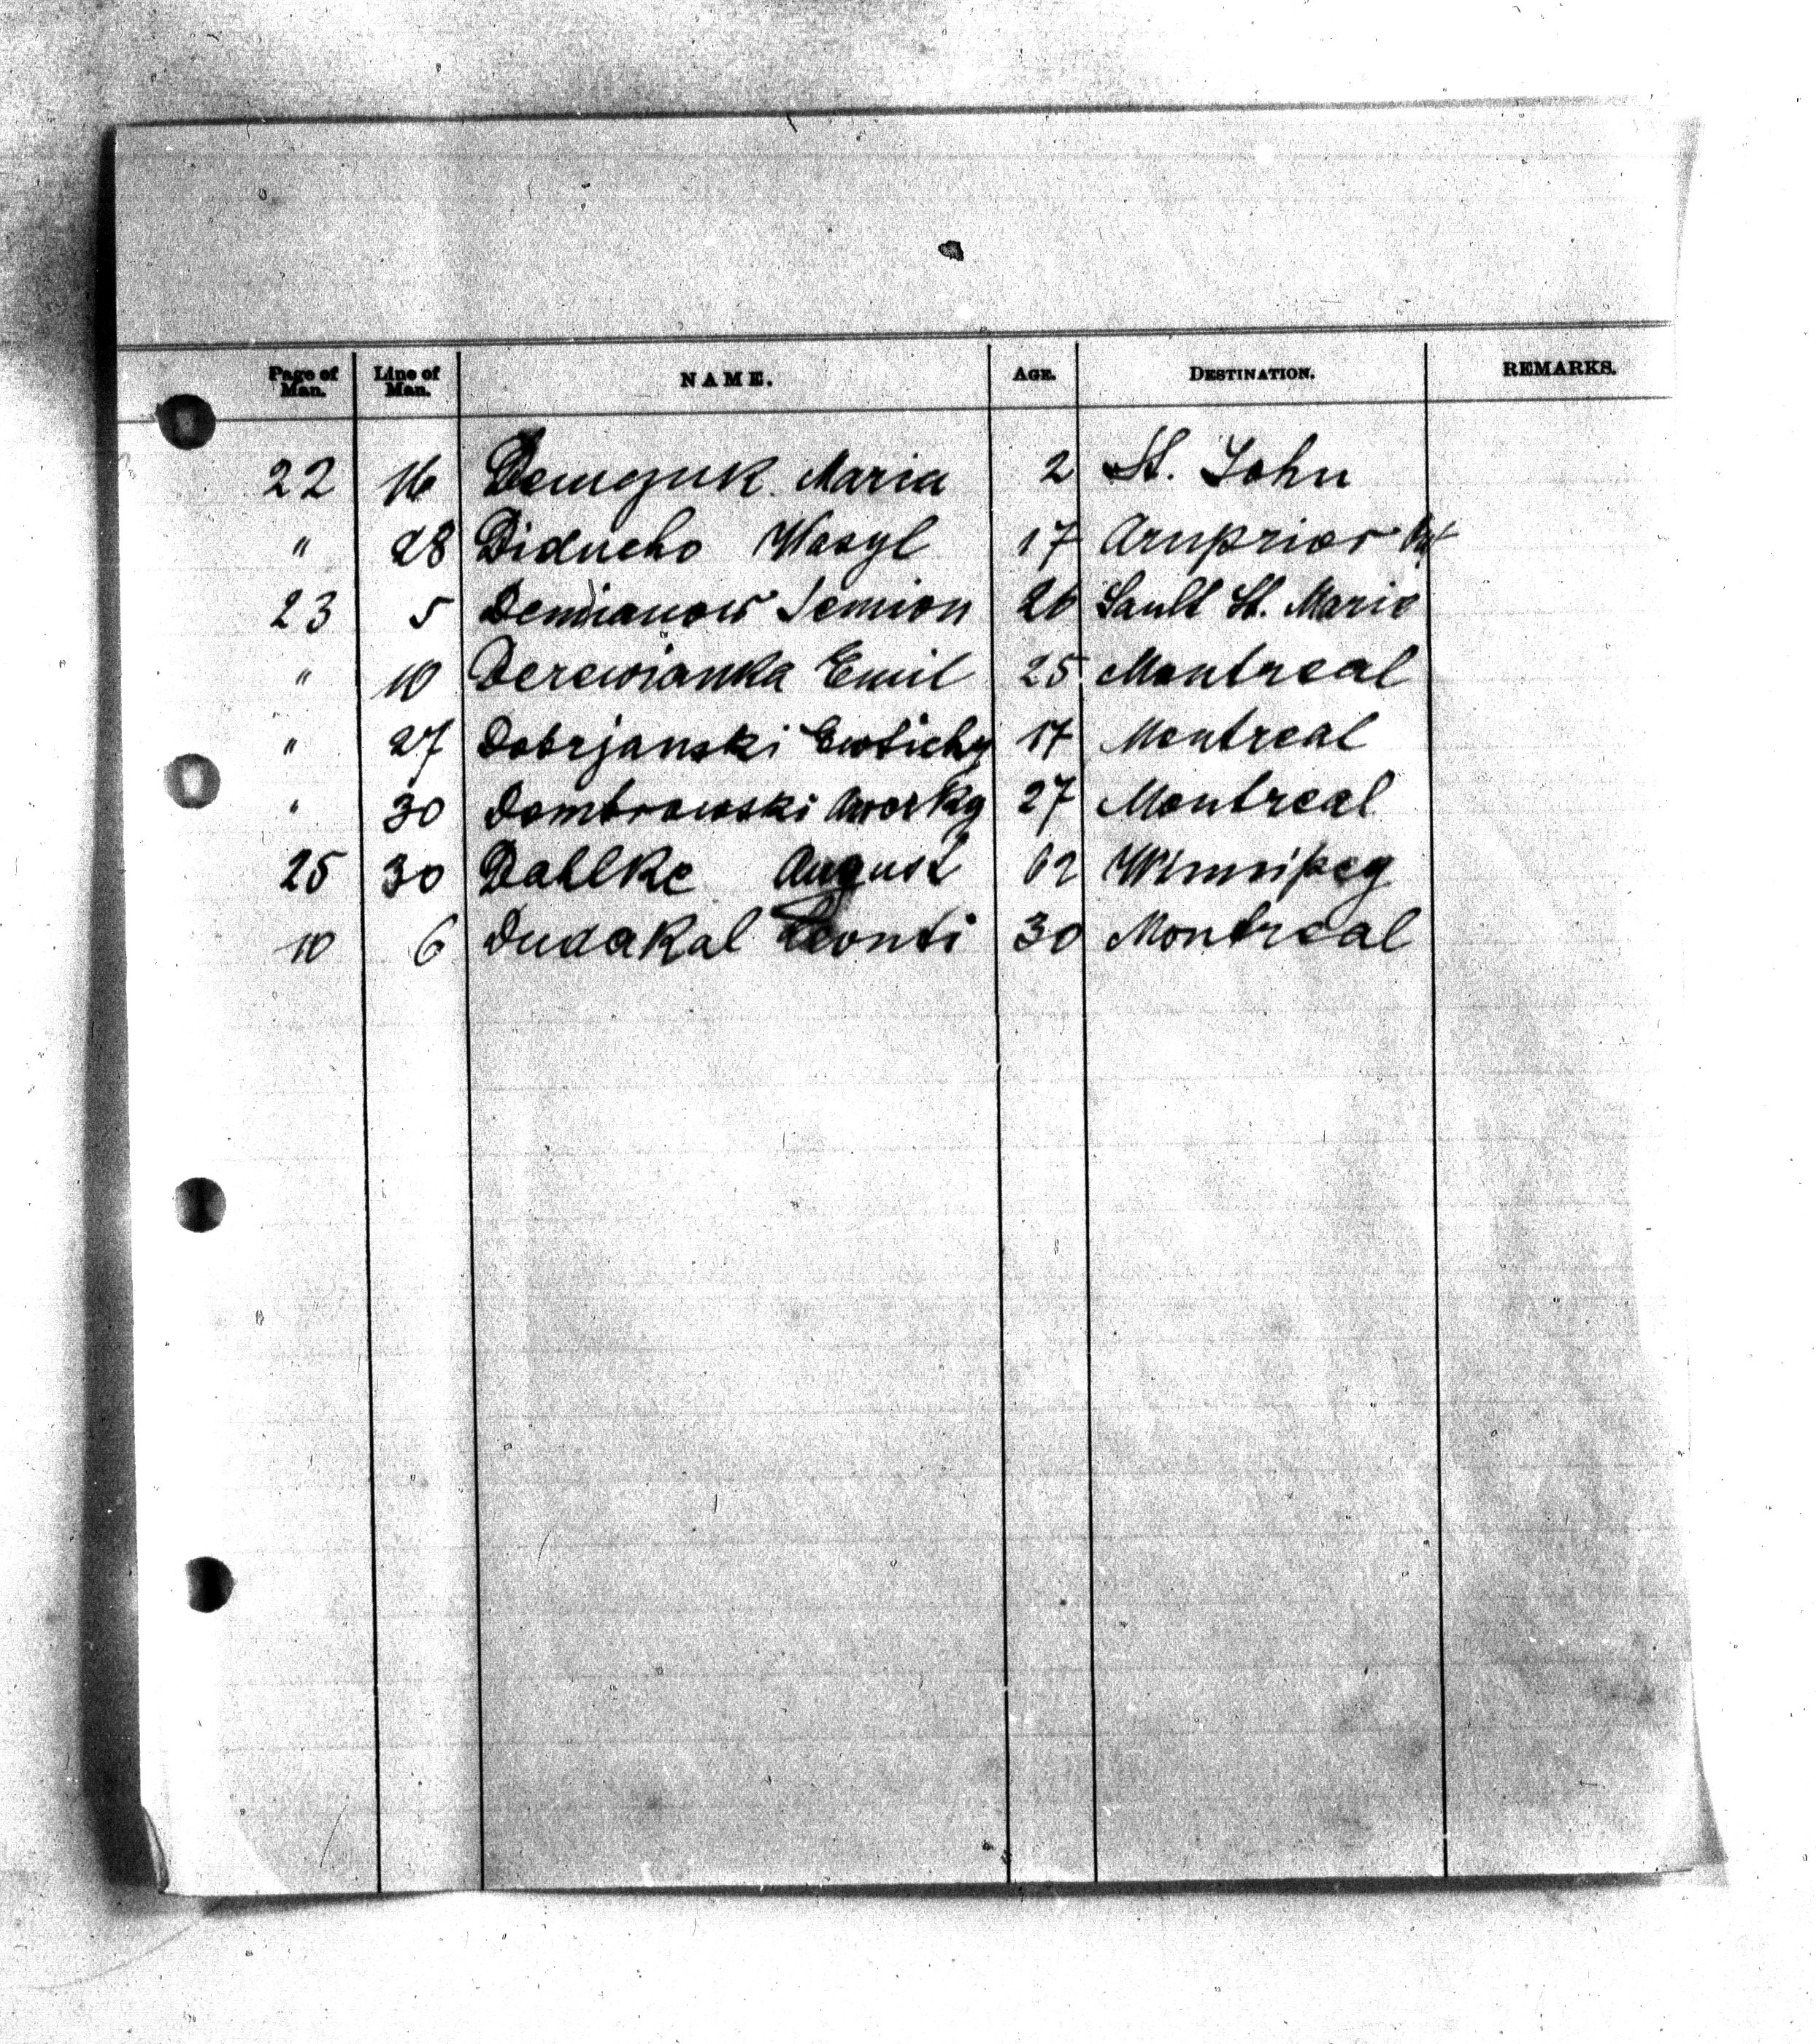 Page of Man. Line of Man. NAME. AGE. DESTINATION. REMARKS.
22 16 Demczuk Maria 2 St. John
" 28 Diducho Wasyl 17 Arnprior Ont
23 5 Demianow Semion 26 Sault St. Marie
" 10 Derewianka Emil 25 Montreal
" 27 Dobrjanski Ewtichy 17 Montreal
" 30 Dombrowski 27 Montreal
25 30 Dahlke August 62 Winnipeg
10 6 Dudakal Leonti 30 Montreal